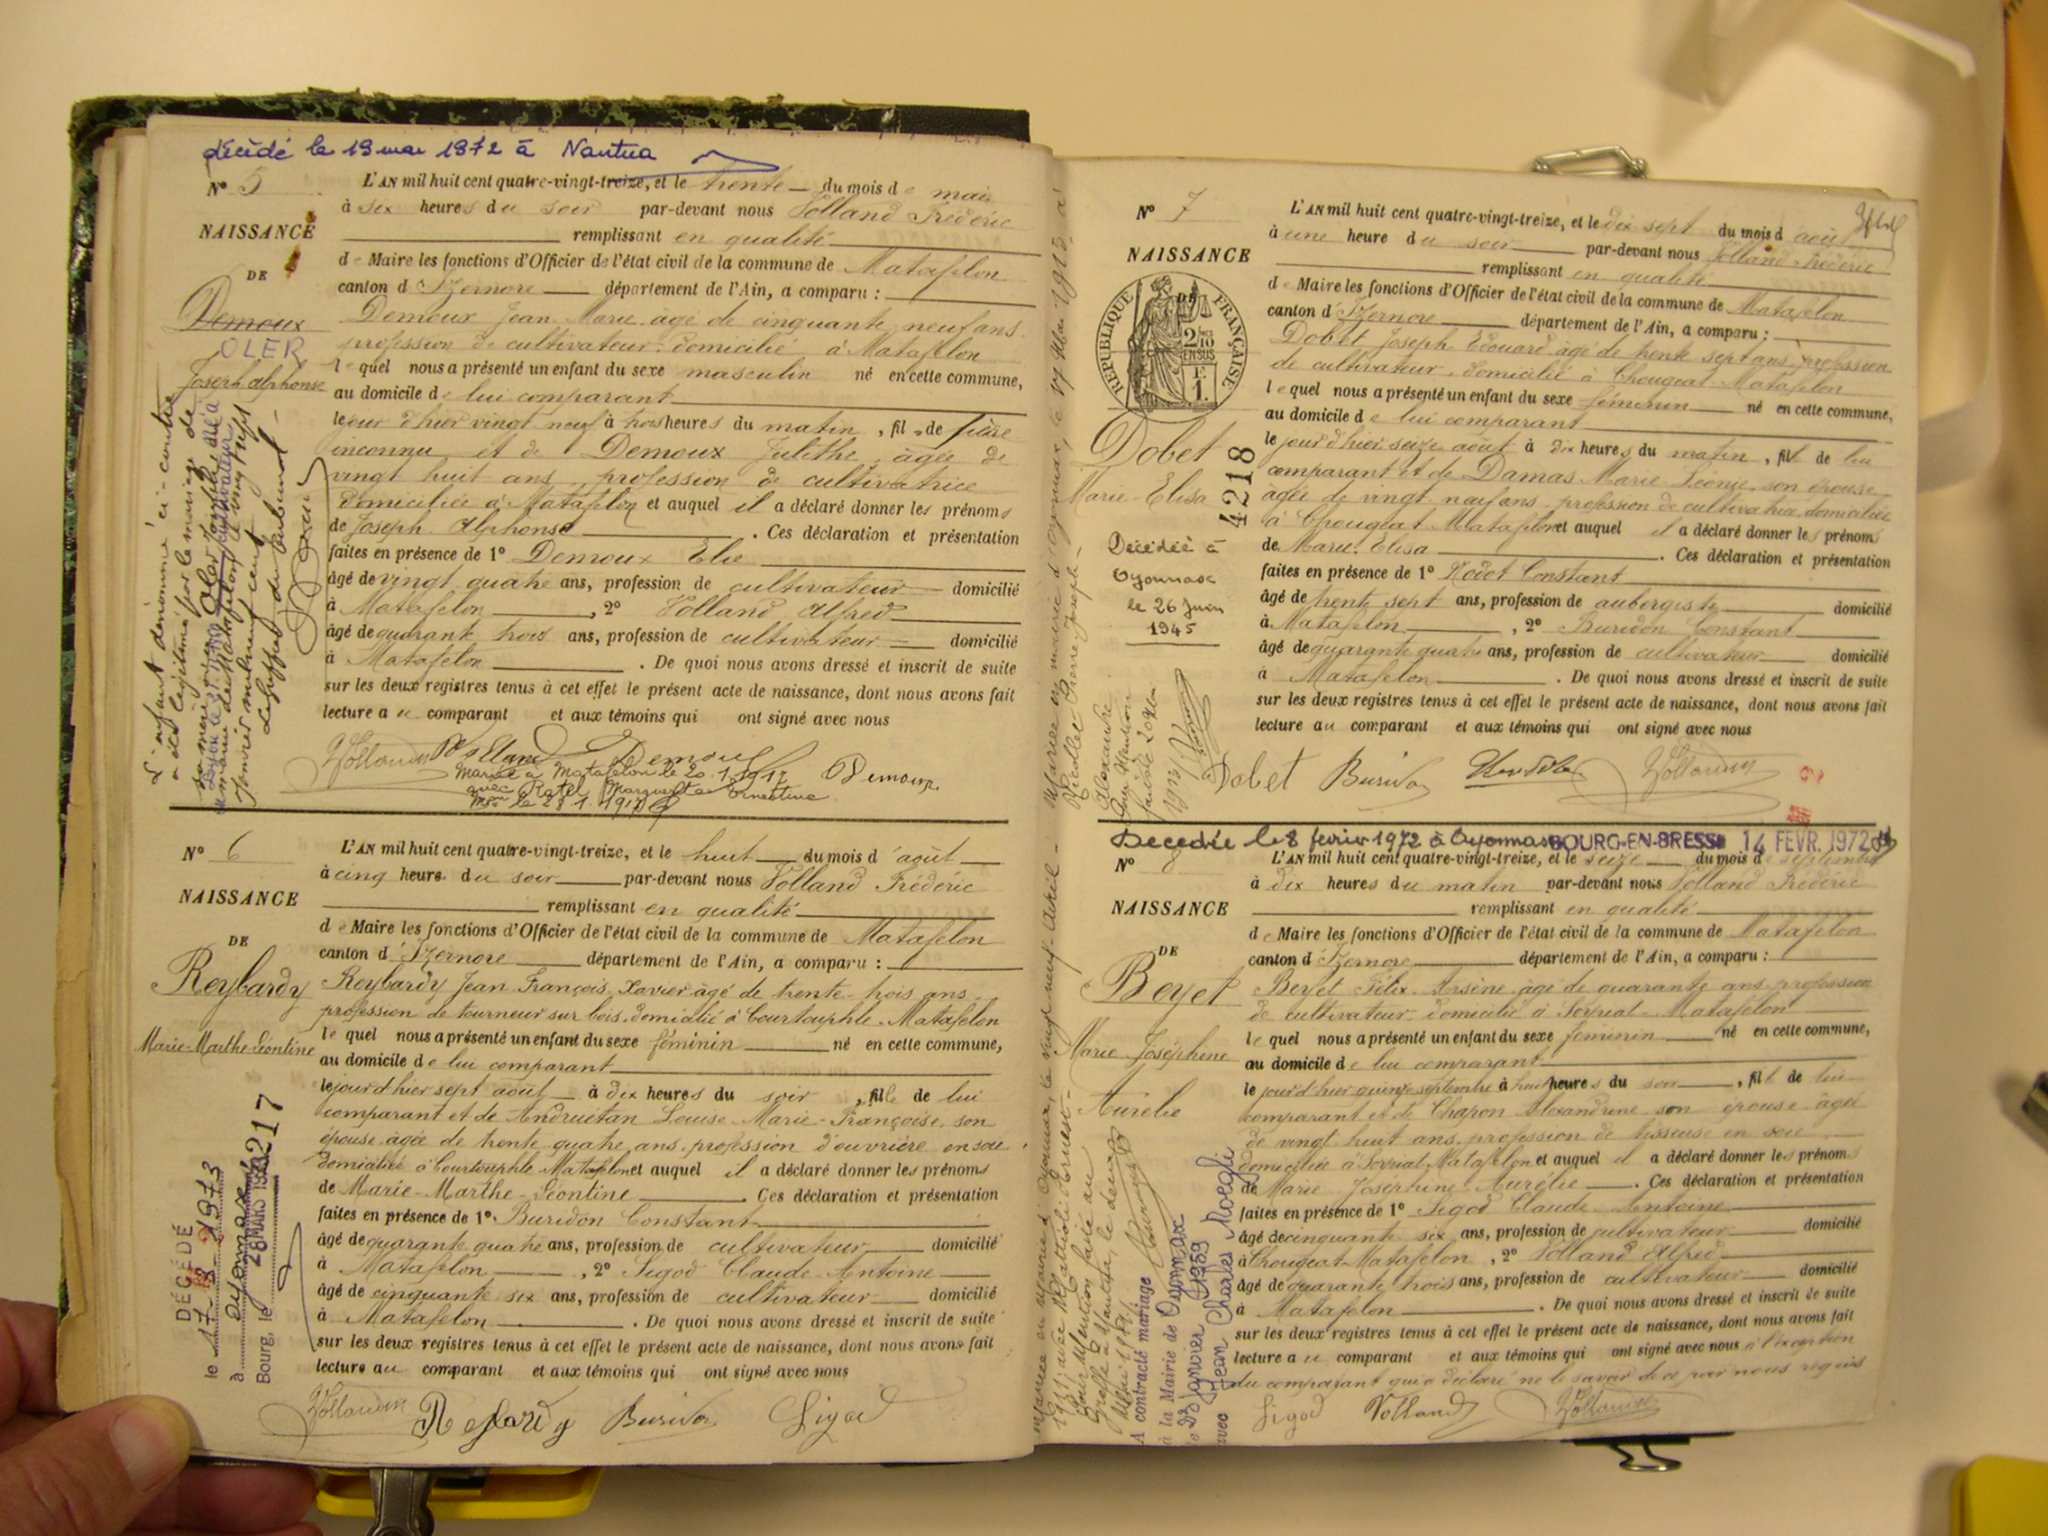 décédé le 19 mai 1972 à Nantua
N° 5
NAISSANCE
DE
Demoux
OLER
Joseph Alphonse
L'AN mil huit cent quatre-vingt-treize, et le trente du mois de mai
à six heures du soir par-devant nous Volland Frédéric
remplissant en qualité
de Maire les fonctions d'Officier de l'état civil de la commune de Matafelon
canton d'Izernore département de l'Ain, a comparu :
Demoux Jean Marie âgé de cinquante neuf ans
profession de cultivateur domicilié à Matafelon
lequel nous a présenté un enfant du sexe masculin né en cette commune,
au domicile de lui comparant
le jour d'hier vingt neuf à trois heures du matin, fils de père
inconnu et de Demoux Julithe, âgée de
vingt huit ans, profession de cultivatrice
domiciliée à Matafelon et auquel il a déclaré donner les prénoms
de Joseph Alphonse. Ces déclaration et présentation
faites en présence de 1° Demoux Elie
âgé de vingt quatre ans, profession de cultivateur domicilié
à Matafelon, 2° Volland Alfred
âgé de quarante trois ans, profession de cultivateur domicilié
à Matafelon. De quoi nous avons dressé et inscrit de suite
sur les deux registres tenus à cet effet le présent acte de naissance, dont nous avons fait
lecture au comparant et aux témoins qui ont signé avec nous
Volland Demoux Demoux
Marié à Matafelon le 20.1.1917
avec Ratel Marguerite Ernestine
L'enfant dénommé ci-contre
a été légitimé par le mariage de
N° 6
NAISSANCE
DE
Reybardy
Marie-Marthe-Léontine
L'AN mil huit cent quatre-vingt-treize, et le huit du mois d'août
à cinq heures du soir par-devant nous Volland Frédéric
remplissant en qualité
de Maire les fonctions d'Officier de l'état civil de la commune de Matafelon
canton d'Izernore département de l'Ain, a comparu :
Reybardy Jean François Xavier âgé de trente-trois ans
profession de tourneur sur bois domicilié à Courtouphle-Matafelon
lequel nous a présenté un enfant du sexe féminin né en cette commune,
au domicile de lui comparant
le jour d'hier sept août à dix heures du soir, fille de lui
comparant et de Andruétan Louise-Marie-Françoise, son
épouse âgée de trente quatre ans, profession d'ouvrière en soie
domiciliée à Courtouphle Matafelon et auquel il a déclaré donner les prénoms
de Marie-Marthe-Léontine. Ces déclaration et présentation
faites en présence de 1° Buridon Constant
âgé de quarante quatre ans, profession de cultivateur domicilié
à Matafelon, 2° Sigod Claude-Antoine
âgé de cinquante six ans, profession de cultivateur domicilié
à Matafelon. De quoi nous avons dressé et inscrit de suite
sur les deux registres tenus à cet effet le présent acte de naissance, dont nous avons fait
lecture au comparant et aux témoins qui ont signé avec nous
Reybardy Buridon Sigod
DÉCÉDÉ
à Oyonnax
Bourg, le 28 MARS 1973
N° 7
NAISSANCE
DE
RÉPUBLIQUE FRANÇAISE
2/10 EN SUS
F 1.
Dobet
Marie Elisa
4218
Décédée à
Oyonnax
le 26 Juin
1945
L'AN mil huit cent quatre-vingt-treize, et le dix sept du mois d'août
à une heure du soir par-devant nous Volland Frédéric
remplissant en qualité
de Maire les fonctions d'Officier de l'état civil de la commune de Matafelon
canton d'Izernore département de l'Ain, a comparu :
Dobet Joseph Edouard âgé de trente sept ans, profession
de cultivateur, domicilié à Chougeat-Matafelon
lequel nous a présenté un enfant du sexe féminin né en cette commune,
au domicile de lui comparant
le jour d'hier seize août à dix heures du matin, fille de lui
comparant et de Damas Marie Léonie son épouse
âgée de vingt neuf ans, profession de cultivatrice domiciliée
à Chougeat-Matafelon et auquel il a déclaré donner les prénoms
de Marie Elisa. Ces déclaration et présentation
faites en présence de 1° Nodet Constant
âgé de trente sept ans, profession de aubergiste domicilié
à Matafelon, 2° Buridon Constant
âgé de quarante quatre ans, profession de cultivateur domicilié
à Matafelon. De quoi nous avons dressé et inscrit de suite
sur les deux registres tenus à cet effet le présent acte de naissance, dont nous avons fait
lecture au comparant et aux témoins qui ont signé avec nous
Dobet Buridon
Décédée le 8 fevrier 1972 à Oyonnax BOURG-EN-BRESSE 14 FEVR. 1972
N° 8
NAISSANCE
DE
Beyet
Marie Joséphine
Aurélie
L'AN mil huit cent quatre-vingt-treize, et le seize du mois de septembre
à dix heures du matin par-devant nous Volland Frédéric
remplissant en qualité
de Maire les fonctions d'Officier de l'état civil de la commune de Matafelon
canton d'Izernore département de l'Ain, a comparu :
Beyet Félix Arsène âgé de quarante ans profession
de cultivateur domicilié à Sovriat-Matafelon
lequel nous a présenté un enfant du sexe féminin né en cette commune,
au domicile de lui comparant
le jour d'hier quinze septembre à huit heures du soir, fille de lui
comparant et de Chapon Alexandrine son épouse âgée
de vingt huit ans, profession de tisseuse en soie
domiciliée à Sovriat Matafelon et auquel il a déclaré donner les prénoms
de Marie Joséphine Aurélie. Ces déclaration et présentation
faites en présence de 1° Sigod Claude Antoine
âgé de cinquante six ans, profession de cultivateur domicilié
à Chougeat-Matafelon, 2° Volland Alfred
âgé de quarante trois ans, profession de cultivateur domicilié
à Matafelon. De quoi nous avons dressé et inscrit de suite
sur les deux registres tenus à cet effet le présent acte de naissance, dont nous avons fait
lecture au comparant et aux témoins qui ont signé avec nous à l'exception
du comparant qui a déclaré ne le savoir de ce par nous requis
Sigod Volland
A contracté mariage
à la Mairie de Oyonnax
le 23 Janvier 1959
avec Jean Charles Moegli